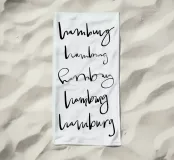 hamburg
hamburg
hamburg
hamburg
hamburg